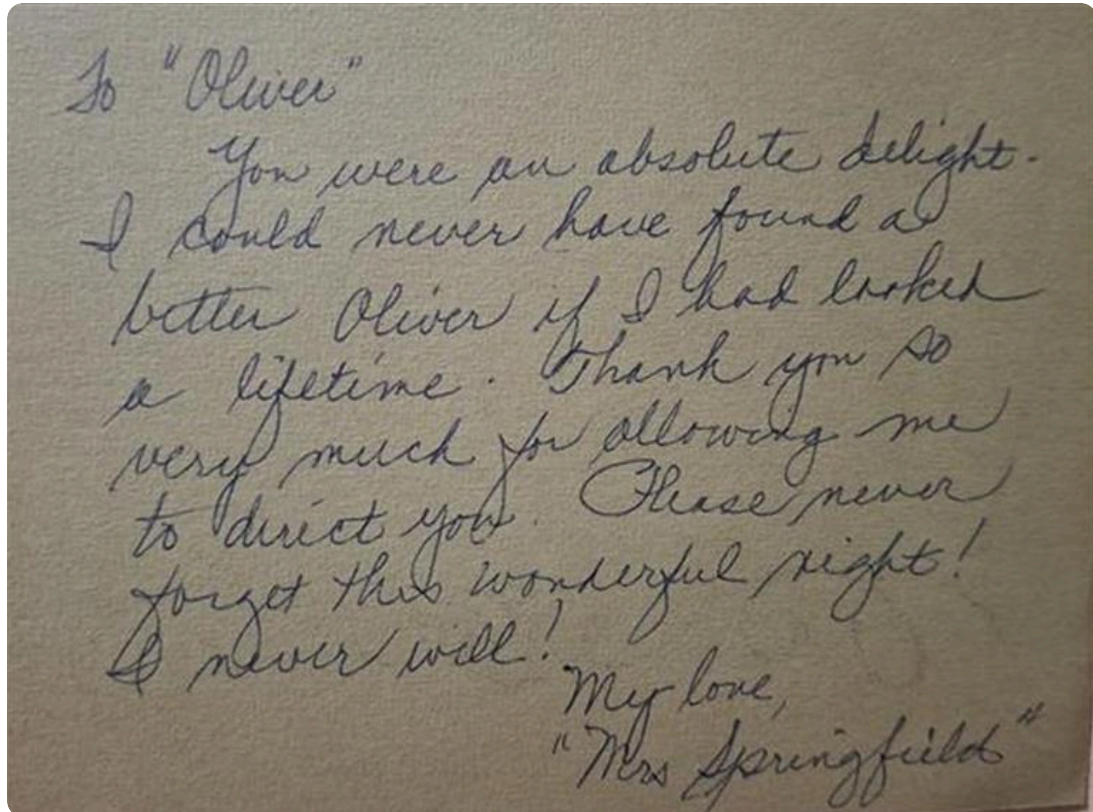 To "Oliver"
You were an absolute delight.
I could never have found a
better Oliver if I had looked
a lifetime. Thank you so
very much for allowing me
to direct you. Please never
forget this wonderful night!
I never will!
My love,
"Mrs Springfield"